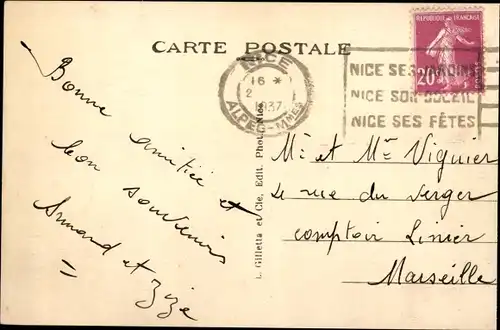 CARTE POSTALE
RÉPUBLIQUE FRANÇAISE
20
NICE
16 *
2
1937
ALPES-MMES
NICE SES JARDINS
NICE SON SOLEIL
NICE SES FÊTES
Bonne amitiée et
bon souvenirs
Armand et Zize
L. Gilletta et Cie. Edit. Phot. Nice
Mr et Mme Viguier
rue du verger
comptoir Linier
Marseille